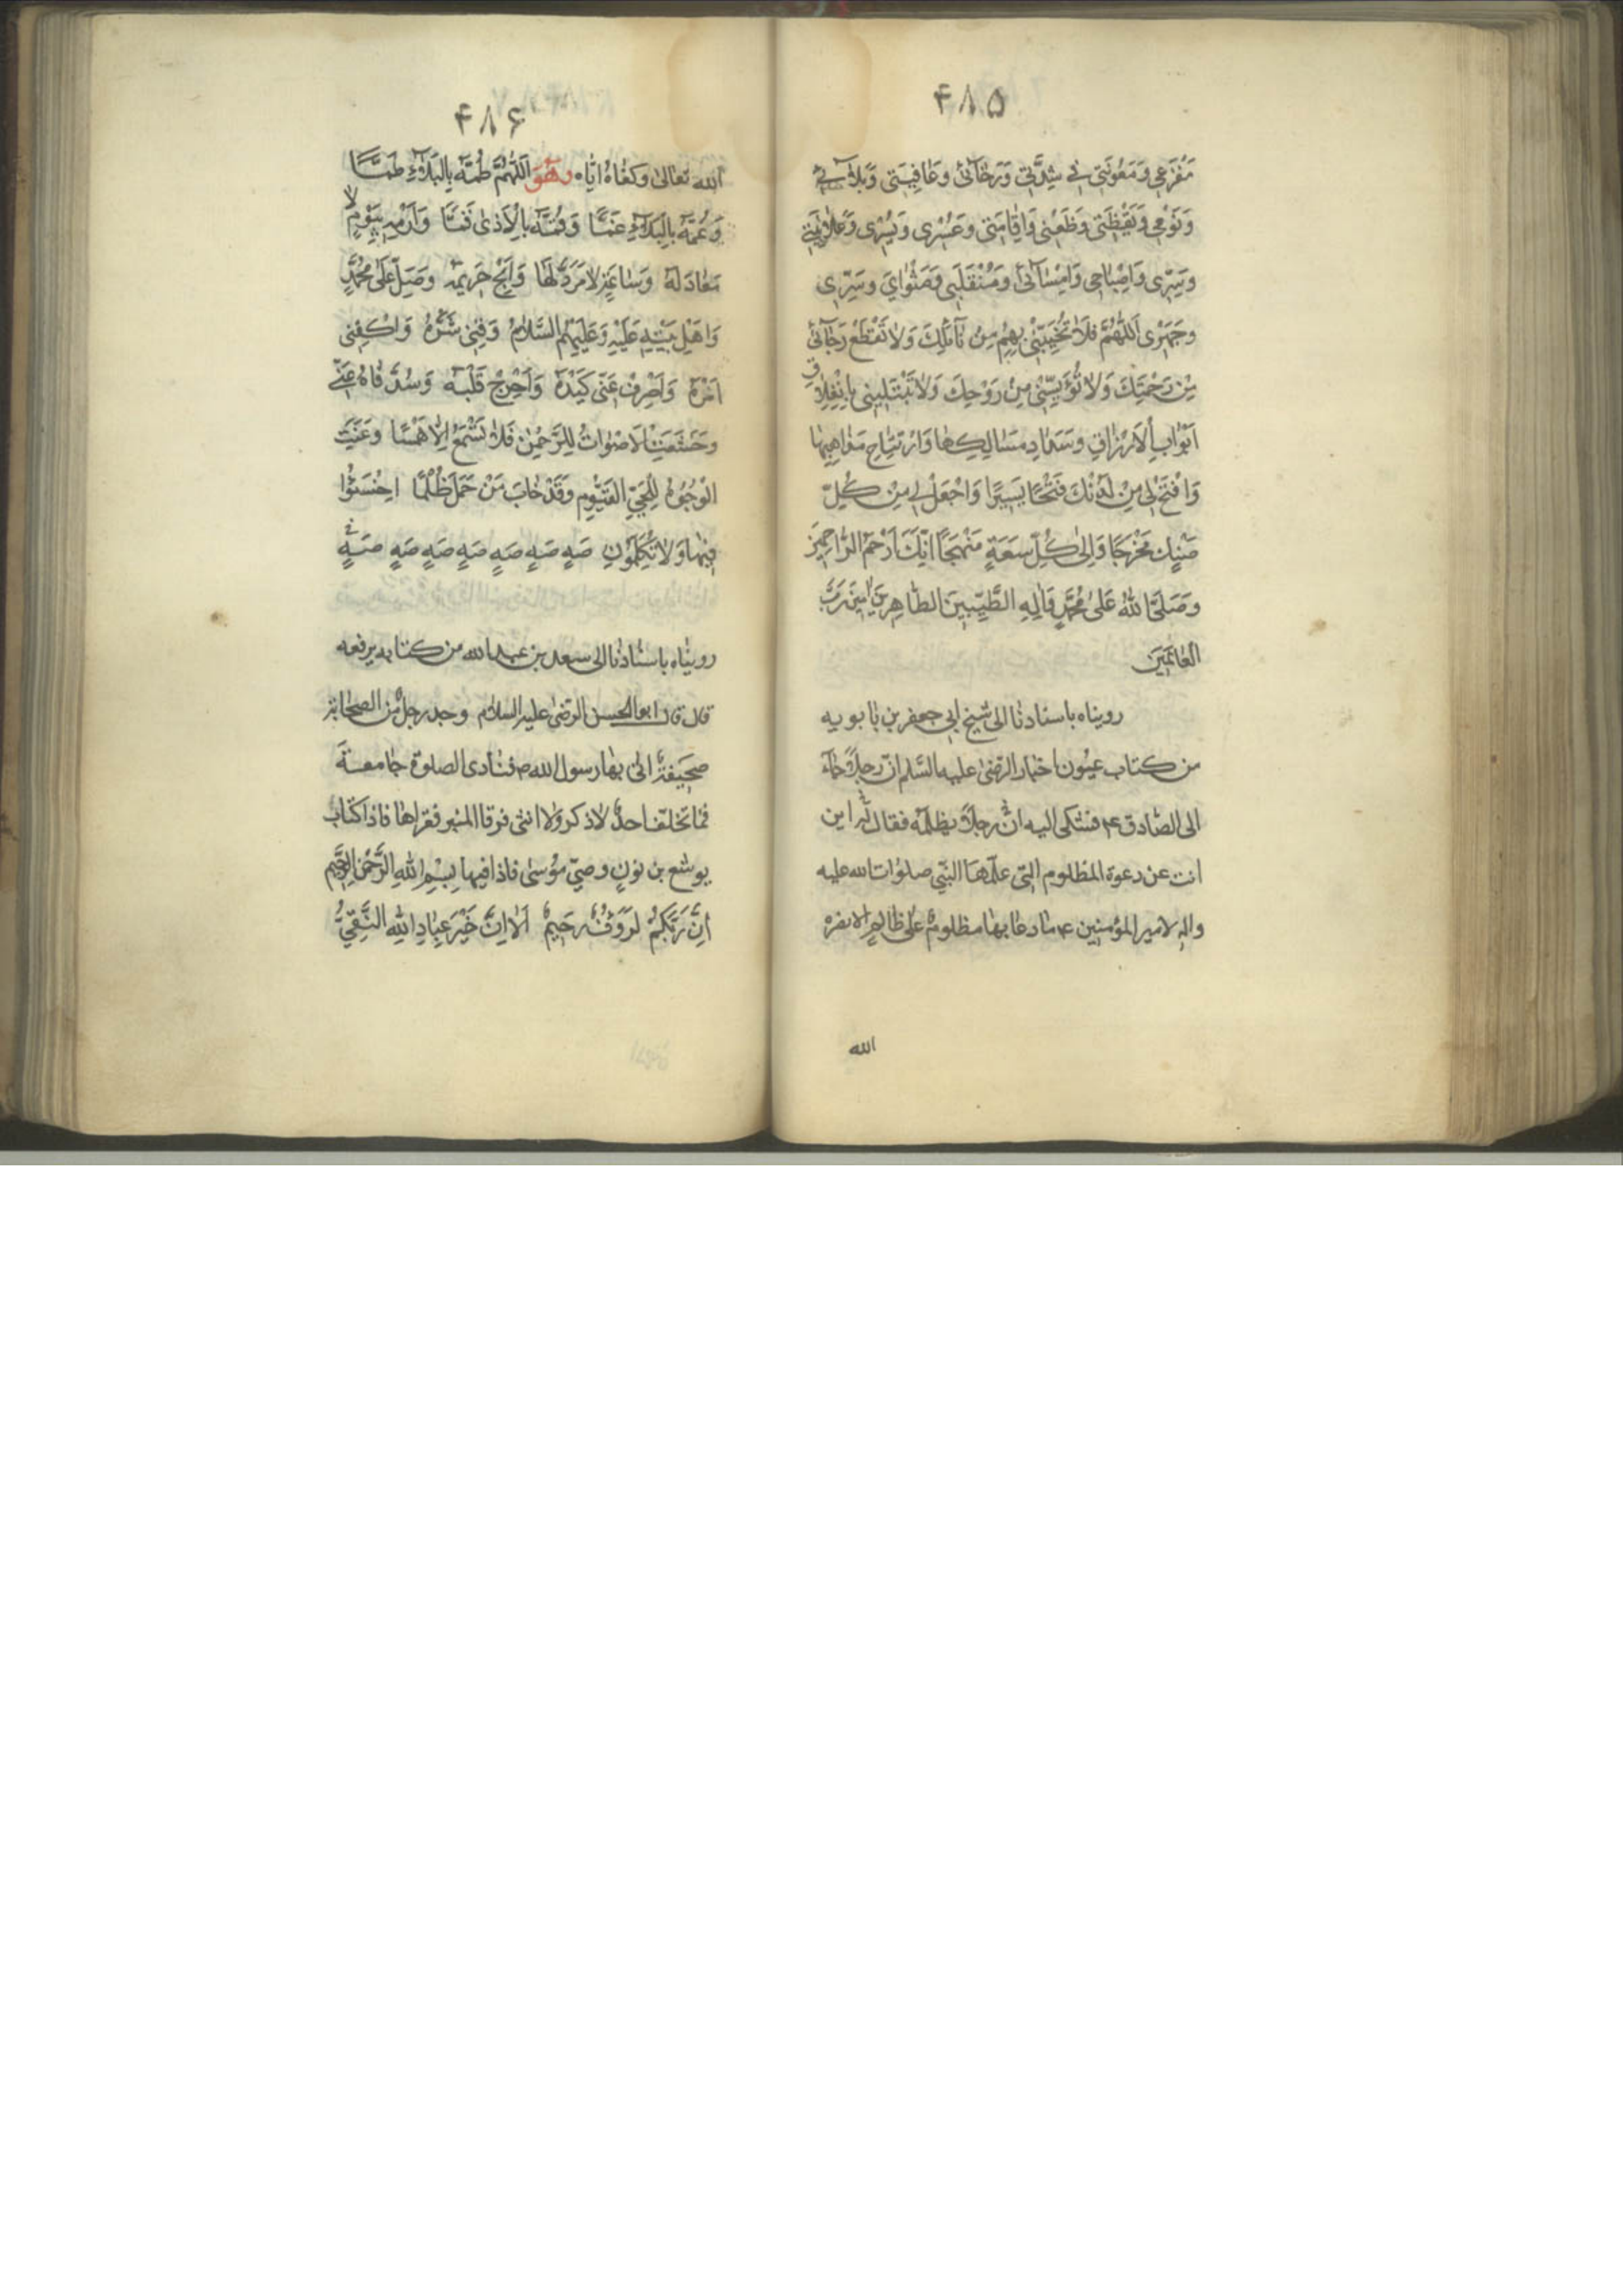 ۴۸۵
مَفْزَعی وَمَعُونَتی فی شِدَّتی وَرَخٰآئی وَعَافِیَتی وَبَلٰآئی
وَنَوْمی وَیَقْظَتی وَظَعْنی وَاِقٰامَتی وَعُسْری وَیُسْری وَعَلٰانِیَتی
وَسِرّی وَاِصْبٰاحی وَاِمْسٰآئی وَمُنْقَلَبی وَمَثْوٰایَ وَسِرّی
وجَهْری اَللّٰهُمَّ فَلٰا تُخَیِّبْنی بِهِمْ مِنْ نٰآئِلِكَ وَلٰا تَقْطَعْ رَجٰآئی
مِنْ رَحْمَتِكَ وَلٰا تُؤْیِسْنی مِنْ رَوْحِكَ وَلٰا تَبْتَلِیَنی بِانْغِلٰاقِ
اَبْوٰابِ الْاَرْزٰاقِ وسَدٰادِ مَسٰالِكِهٰا وَارْتِتٰاجِ مَذٰاهِبِهٰا
وَافْتَحْ لی مِنْ لَدُنْكَ فَتْحًا یَسیرًا وَاجْعَلْ لی مِنْ كُلِّ
ضَنْكٍ مَخْرَجًا وَاِلٰی كُلِّ سَعَةٍ مَنْهَجًا اِنَّكَ اَرْحَمُ الرّٰاحِمینَ
وَصَلَّی اللّٰهُ عَلٰی مُحَمَّدٍ وَاٰلِهِ الطَّیِّبینَ الطّٰاهِرینَ اٰمینَ رَبَّ
الْعٰالَمینَ
رویناه باسنادنا الی شیخ ابی جعفر بن بابویه
من كتاب عیون اخبار الرضی علیه السّلم انّ رجلًا جآء
الی الصّادق ع فشكی الیه انّ رجلًا یظلمه فقال له این
انت عن دعوة المظلوم الّتی علّمها النّبی صلوات الله علیه
واله لامیر المؤمنین ع ما دعا بها مظلومٌ علی ظالمٍ الا نصره
الله
۴۸۶
الله تعالی وكفٰاهُ ایّاه وهُوَ اَللّٰهُمَّ طُمَّهُ بِالْبَلٰآءِ طَمًّا
وَعُمَّهُ بِالْبَلٰآءِ عَمًّا وَقُمَّهُ بِالْاَذٰی قَمًّا وَارْمِهِ بِیَوْمٍ لٰا
مَعٰادَ لَهُ وَسٰاعَةٍ لٰا مَرَدَّ لَهٰا وَاَبِحْ حَریمَهُ وَصَلِّ عَلٰی مُحَمَّدٍ
وَاَهْلِ بَیْتِهِ عَلَیْهِ وَعَلَیْهِمُ السَّلٰامُ وَقِنی شَرَّهُ وَاكْفِنی
اَمْرَهُ وَاصْرِفْ عَنّی كَیْدَهُ وَاَحْرِجْ قَلْبَهُ وَسُدَّ فٰاهُ عَنّی
وخَشَعَتِ الْاَصْوٰاتُ لِلرَّحْمٰنِ فَلٰا تَسْمَعُ اِلّٰا هَمْسًا وعَنَتِ
الْوُجُوهُ لِلْحَیِّ الْقَیُّومِ وقَدْ خٰابَ مَنْ حَمَلَ ظُلْمًا اخْسَئُوا
فیهٰا وَلٰا تُكَلِّمُونِ صَهٍ صَهٍ صَهٍ صَهٍ صَهٍ صَهٍ صَهٍ
رویناه باسنادنا الی سعد بن عبد الله من كتابه یرفعه
قال قال ابو الحسن الرضی علیه السلام وجد رجلٌ من الصحابة
صحیفةً اتی بها رسول الله ص فنادی الصلوة جامعةً
فما تخلّف احدٌ لا ذكر ولا انثی فرقا المنبر فقراها فاذا كتاب
یوشع بن نون وصیّ موسی فاذا فیها بِسْمِ اللهِ الرَّحْمٰنِ الرَّحیمِ
اِنَّ رَبَّكُمْ لَرَؤُفٌ رَحیمٌ اَلٰا اِنَّ خَیْرَ عِبٰادِ اللهِ التَّقِیُّ